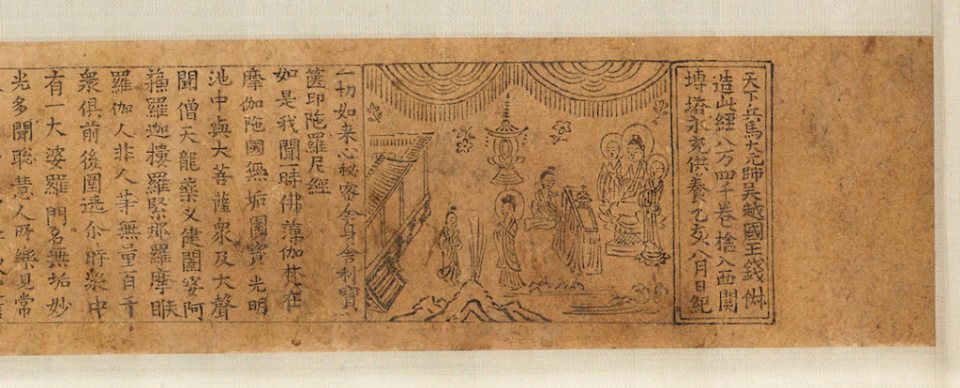 天下兵馬大元帥吳越國王錢俶
造此經八万四千卷捨入西関
塼塔永充供養乙亥八月日紀
一切如来心秘密全身舍利寶
篋印陀羅尼經
如是我聞一時佛薄伽梵在
摩伽陁國無垢園寶光明
池中與大菩薩衆及大聲
聞僧天龍藥叉健闥婆阿
蘓羅迦樓羅緊那羅摩睺
羅伽人非人等無量百千
衆俱前後圍遶尒時衆中
有一大婆羅門名無垢妙
光多聞聡慧人所樂見常